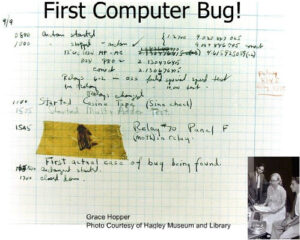 First Computer Bug!
9/9
0800 Antan started
1000 " stopped - antan ✓
13"uc (032) MP-MC
033 PRO 2 2.130476415
correct 2.130676415
Relays 6-2 in 033 failed special speed test
in relay
Relays changed
1100 Started Cosine Tape (Sine check)
1525 Started Multi Adder Test.
1545 Relay #70 Panel F
(moth) in relay.
First actual case of bug being found.
antangent started.
1700 closed down.
Grace Hopper
Photo Courtesy of Hagley Museum and Library